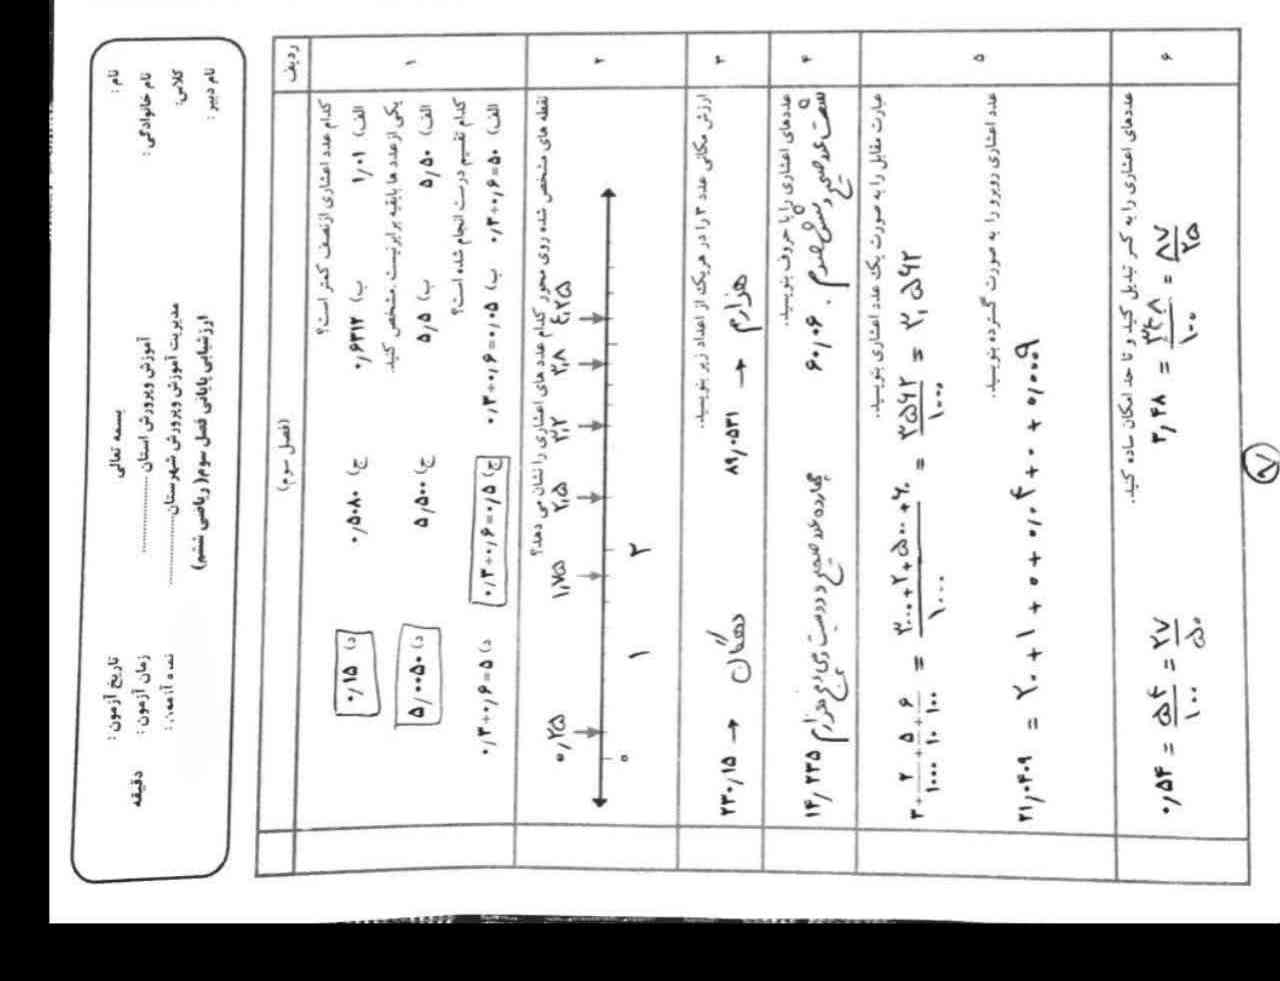 بسمه تعالی
نام :
نام خانوادگی :
کلاس:
نام دبیر :
آموزش وپرورش استان ..............
مدیریت آموزش وپرورش شهرستان..............
ارزشیابی پایانی فصل سوم( ریاضی ششم)
تاریخ آزمون :
زمان آزمون : دقیقه
ردیف
(فصل سوم)
۱
کدام عدد اعشاری ازنصف کمتر است؟
الف) ۱/۰۱ ب) ۰/۶۳۱۲ ج) ۰/۵۰۸۰ د) ۰/۱۵
یکی ازعدد ها بابقیه برابرنیست .مشخص کنید.
الف) ۵/۵۰ ب) ۵/۵ ج) ۵/۵۰۰ د) ۵/۰۰۵۰
کدام تقسیم درست انجام شده است؟
الف) ۰/۳÷۰/۶=۵۰ ب) ۰/۳÷۰/۶=۰/۰۵ ج) ۰/۳÷۰/۶=۰/۵ د) ۰/۳÷۰/۶=۵
۲
نقطه های مشخص شده روی محور کدام عدد های اعشاری را نشان می دهد؟
۰/۲۵ ۱/۷۵ ۲/۵ ۳/۲ ۳/۸ ۴/۲۵
۰ ۱ ۲
۳
ارزش مکانی عدد ۳ را در هریک از اعداد زیر بنویسید.
۸۹/۰۵۳۱ → هزارم ۲۳۰/۱۵ → دهگان
۴
عددهای اعشاری را با حروف بنویسید.
۶۰/۰۶ شصت عدد صحیح و شش صدم .
۱۴/۲۳۵ چهارده عدد صحیح و دویست و سی و پنج هزارم
۵
عبارت مقابل را به صورت یک عدد اعشاری بنویسید.
۳+۲/۱۰۰۰+۵/۱۰+۶/۱۰۰ = ۳۰۰۰+۲+۵۰۰+۶۰/۱۰۰۰ = ۳۵۶۲/۱۰۰۰ = ۳/۵۶۲
عدد اعشاری روبرو را به صورت گسترده بنویسید.
۲۱/۰۴۰۹ = ۲۰+۱+۰+۰/۰۴+۰+۰/۰۰۰۹
۶
عددهای اعشاری را به کسر تبدیل کنید و تا حد امکان ساده کنید.
۳/۴۸ = ۳۴۸/۱۰۰ = ۸۷/۲۵ ۰/۵۴ = ۵۴/۱۰۰ = ۲۷/۵۰